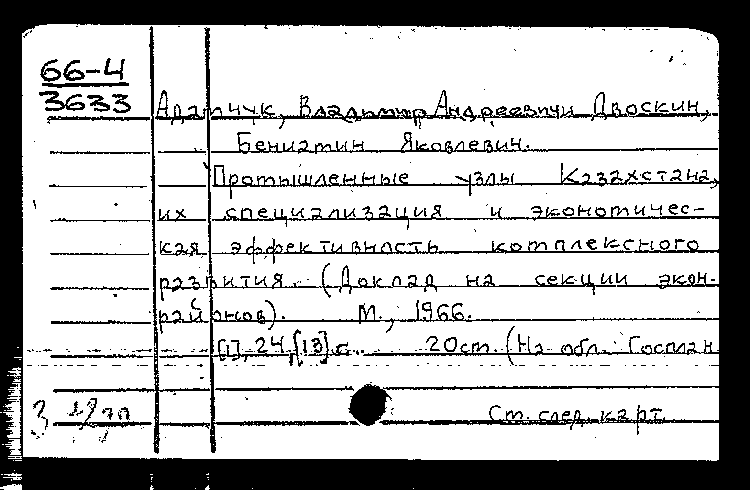 66-4
3633
Адамчук, Владимир Андреевич и Двоскин,
Бениамин Яковлевич.
Промышленные узлы Казахстана,
их специализация и экономичес-
кая эффективность комплексного
развития. (Доклад на секции экон.
районов). М., 1966.
[1], 24, [13] с. 20см. (На обл. Госплан
Ст. след. карт.